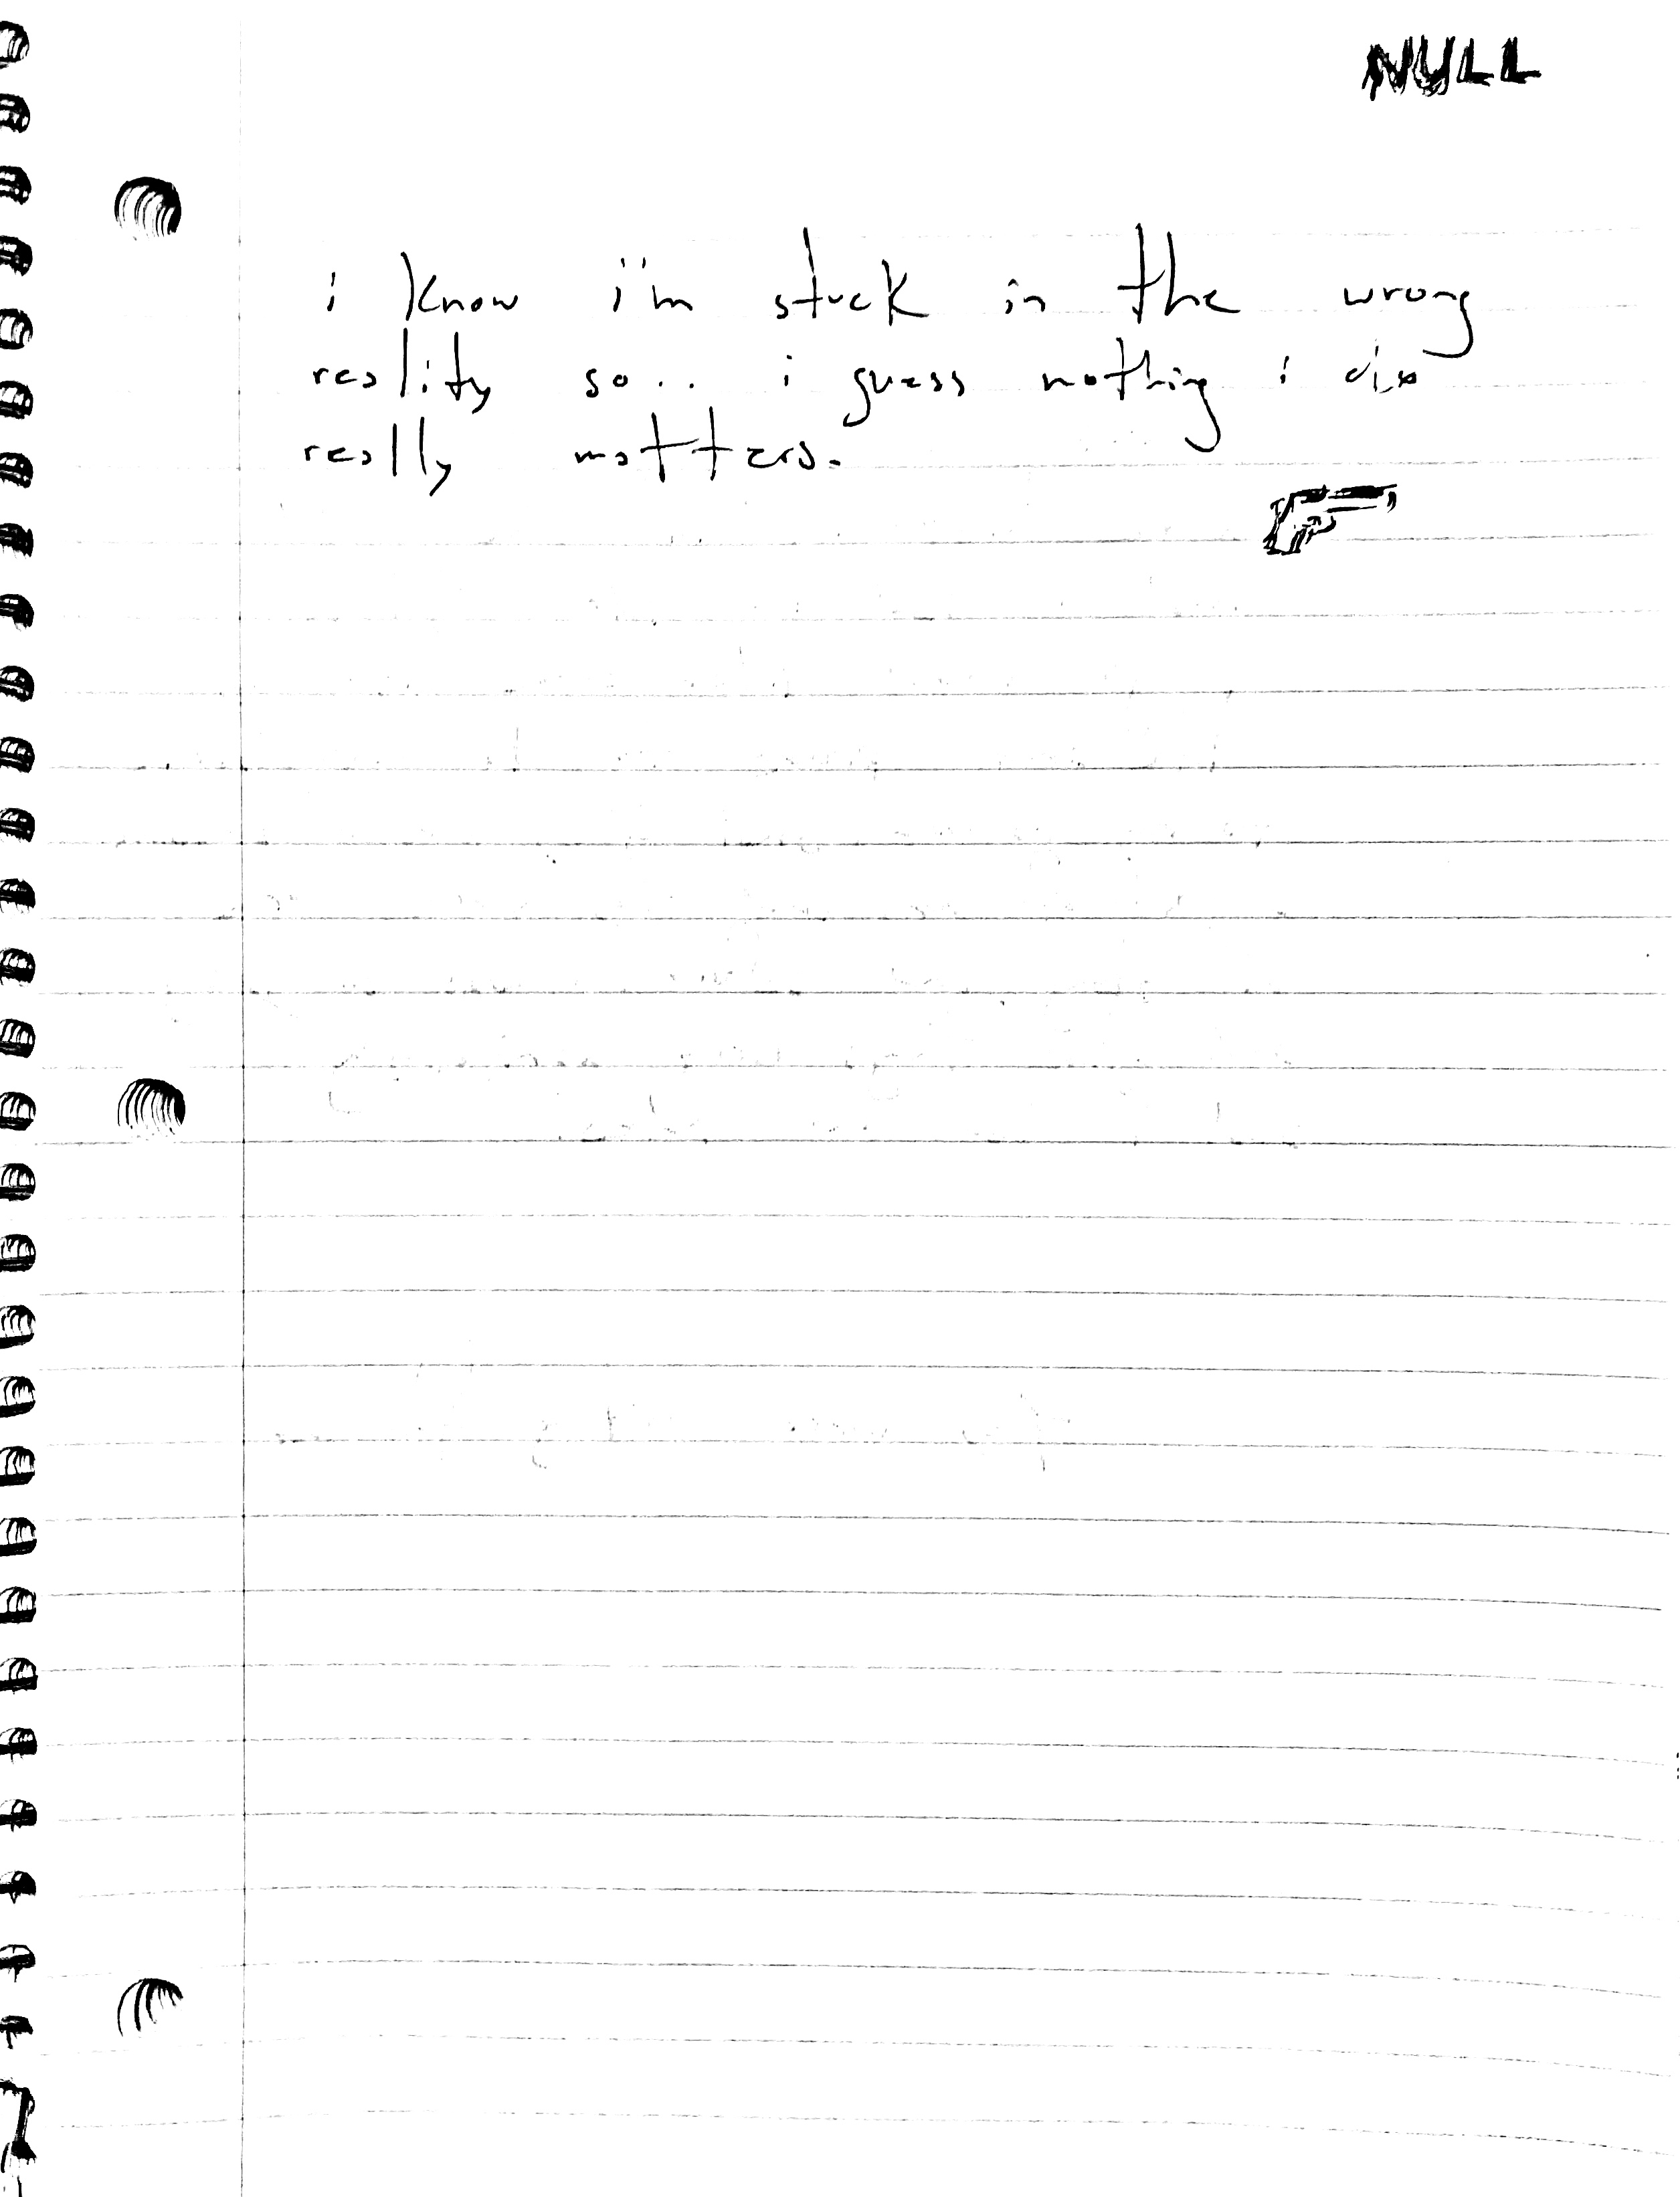 NULL
i know i'm stuck in the wrong
reality so.. i guess nothing i do
really matters.